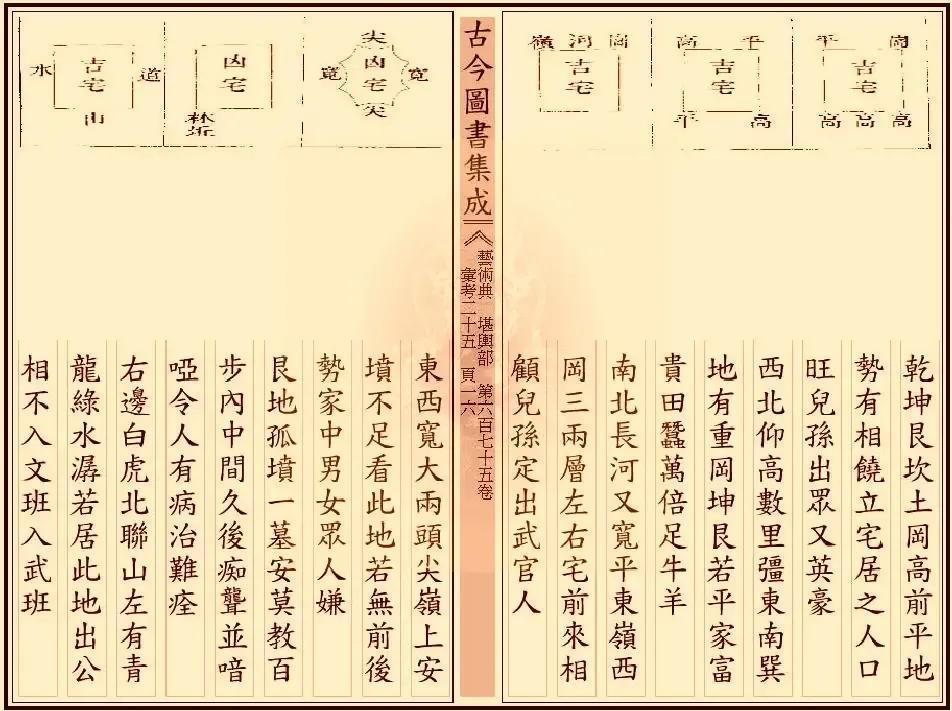 崗 平
吉宅
高 高 高
乾坤艮坎土岡高前平地
勢有相饒立宅居之人口
旺兒孫出眾又英豪
平 高
吉宅
高 平
西北仰高數里彊東南巽
地有重岡坤艮若平家富
貴田蠶萬倍足牛羊
崗 河 嶺
吉宅
南北長河又寬平東嶺西
岡三兩層左右宅前來相
顧兒孫定出武官人
古今圖書集成
藝術典 堪輿部 第六百七十五卷
彙考二十五 頁一六
尖
寬 凶宅 寬
尖
東西寬大兩頭尖嶺上安
墳不足看此地若無前後
勢家中男女眾人嫌
凶宅
林
艮地孤墳一墓安莫教百
步內中間久後痴聾並喑
啞令人有病治難痊
道 吉宅 水
山
右邊白虎北聯山左有青
龍綠水潺若居此地出公
相不入文班入武班